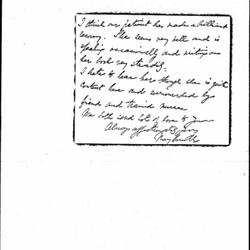 I think our patient has made a brilliant
recovery. She seems very well and is
sleeping occasionally and writing on
her book very steadily.
I hate to leave her though she is quite
content here and surrounded by
friends and trained nurses
We both send lots of love to you
Always affectionately yours